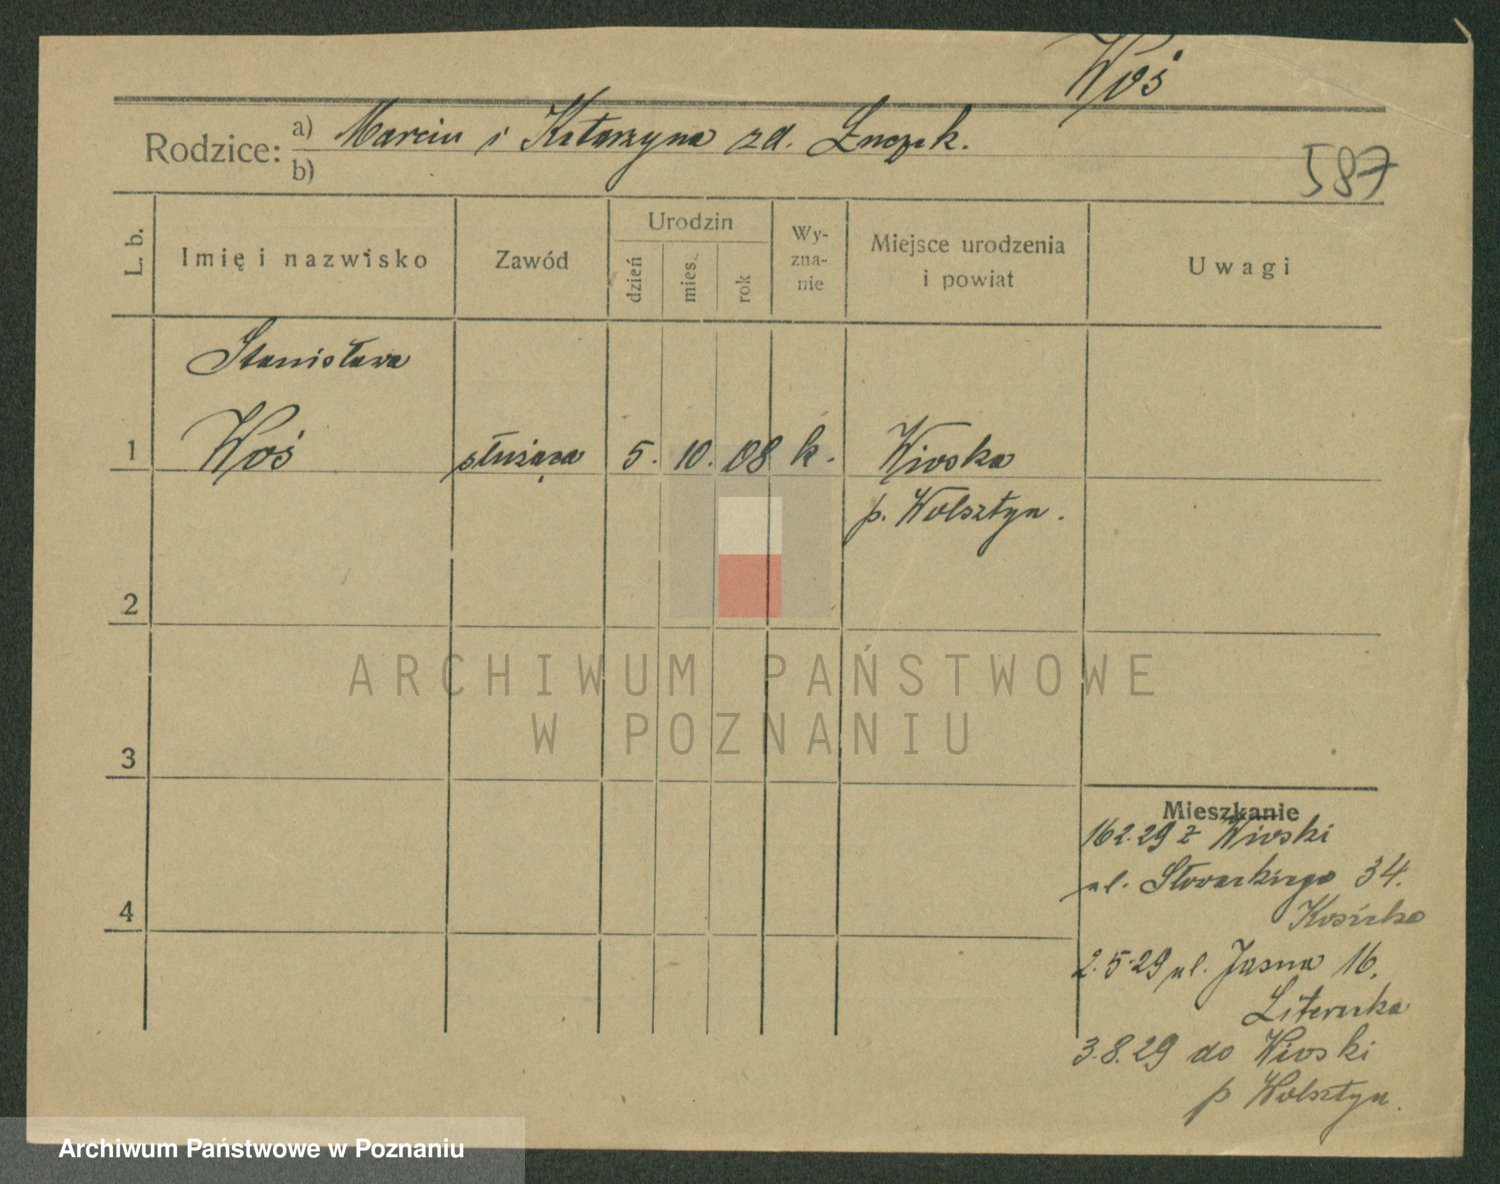 Woś
Rodzice:
a) Marcin i Katarzyna zd.
b)
587
L. b.
Imię i nazwisko
Zawód
Urodzin
dzień
mies.
rok
Wy-
zna-
nie
Miejsce urodzenia
i powiat
Uwagi
Stanisława
1 Woś służąca 5. 10. 08 k. Wioska
p. Wolsztyn.
2
3
4
ARCHIWUM PAŃSTWOWE
W POZNANIU
Mieszkanie
16 2. 29 z Wioski
ul. Słowackiego 34.
2. 5. 29 ul. Jasna 16.
Literacka
3. 8. 29 do Wioski
p Wolsztyn.
Archiwum Państwowe w Poznaniu